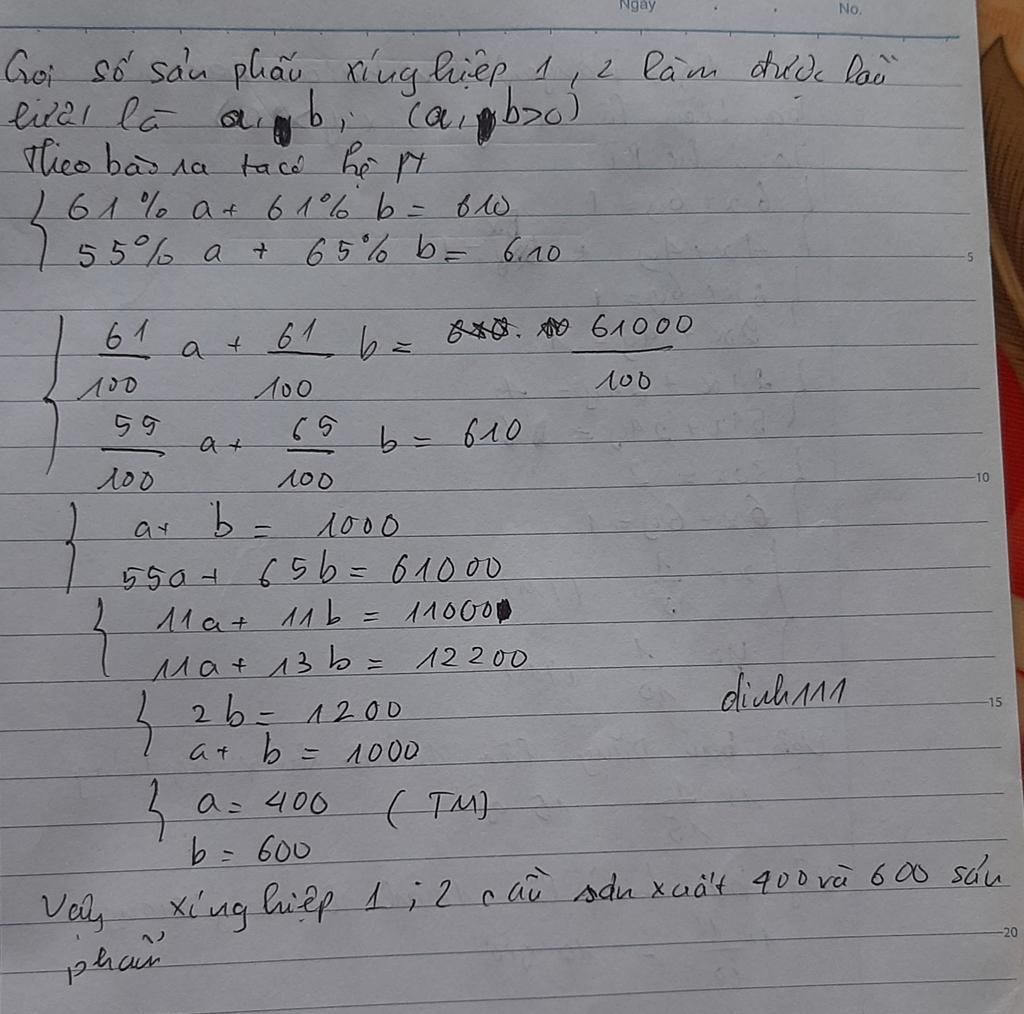 Ngày No.
Gọi số sản phẩm xí nghiệp 1, 2 làm được lần
lượt là a, b; (a, b>0)
Theo bào ra ta có hệ pt
{ 61% a + 61% b = 610
55% a + 65% b = 610
5
{ 61/100 a + 61/100 b = 61000/100
55/100 a + 65/100 b = 610
10
{ a + b = 1000
55a + 65b = 61000
{ 11a + 11b = 11000
11a + 13b = 12200
{ 2b = 1200
dinh111
15
a + b = 1000
{ a = 400 (TM)
b = 600
Vậy xí nghiệp 1; 2 cần sản xuất 400 và 600 sản
20
phẩm